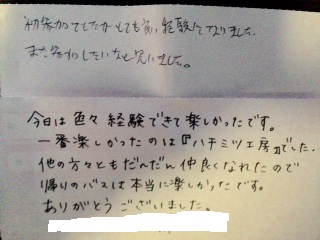 初参加でしたがとても良い経験になりました。
また参加したいなと思いました。
今日は色々経験できて楽しかったです。
一番楽しかったのは『ハチミツ工房』でした。
他の方々ともだんだん仲良くなれたので
帰りのバスは本当に楽しかったです。
ありがとうございました。